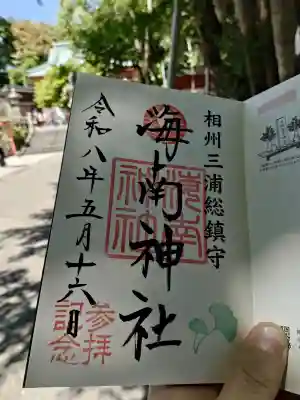 相州三浦総鎮守
海南神社
海南神社
令和八年五月十六日
参拝記念